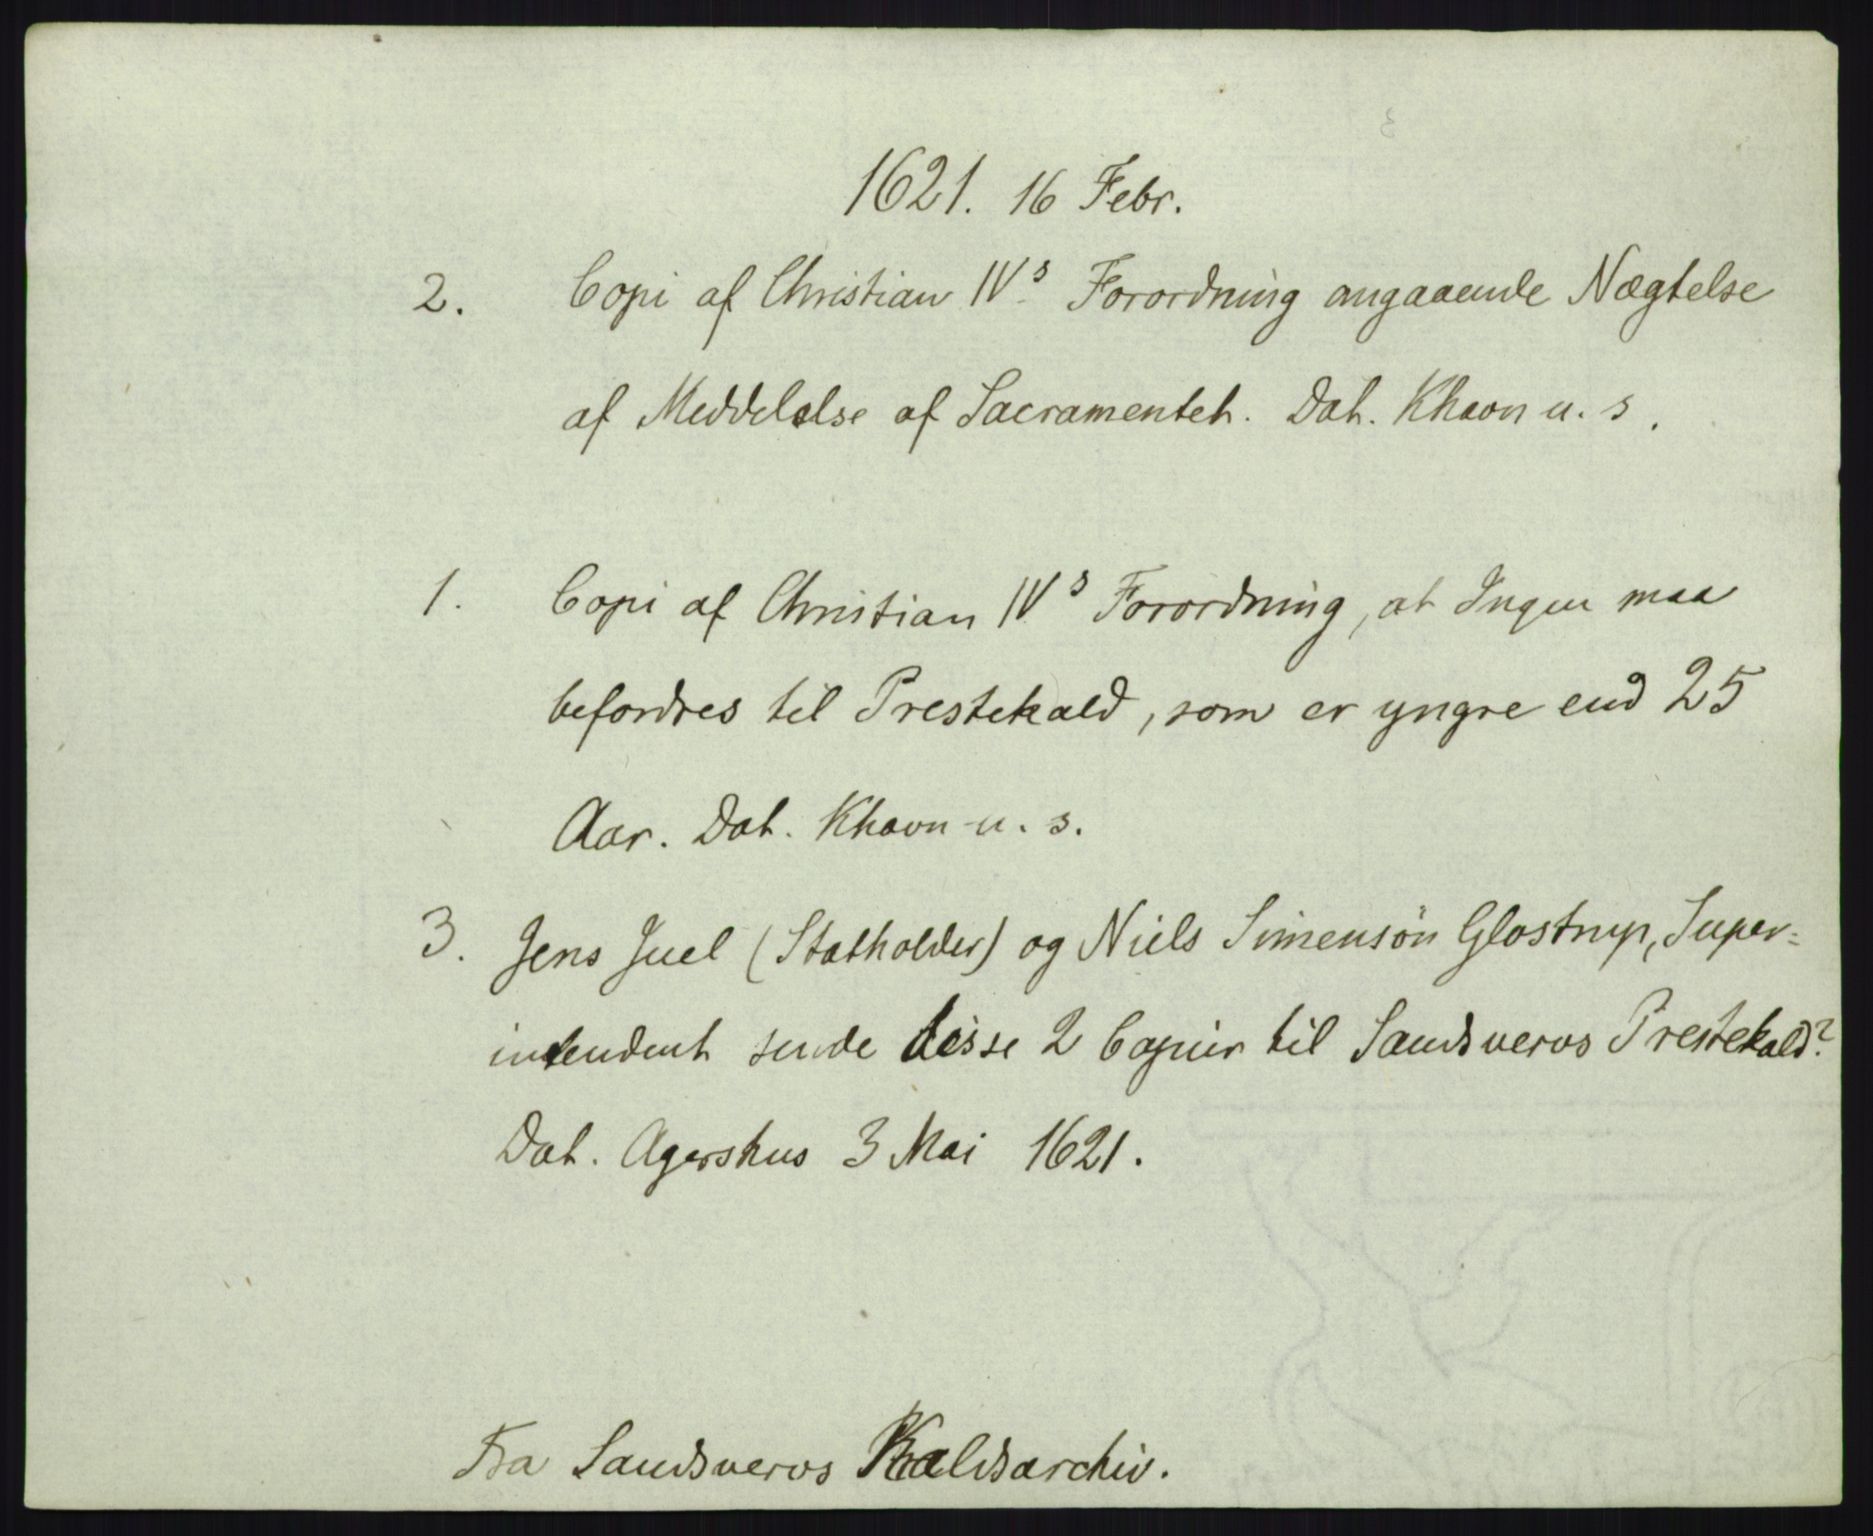 1621. 16 Febr.
2. Copi af Christian IVs Forordning angaaende Nægtelse
af Meddelelse af Sacramentet. Dat. Khavn u. s.
1. Copi af Christian IVs Forordning, at Ingen maa
befordres til Prestekald, som er yngre end 25
Aar. Dat. Khavn u. s.
3. Jens Juel (Statholder) og Niels Simensøn Glostrup, Super=
intendent sende disse 2 Copier til Sandsvervs Prestekald?
Dat. Agershus 3 Mai 1621.
Fra Sandsvervs Kaldsarchiv.